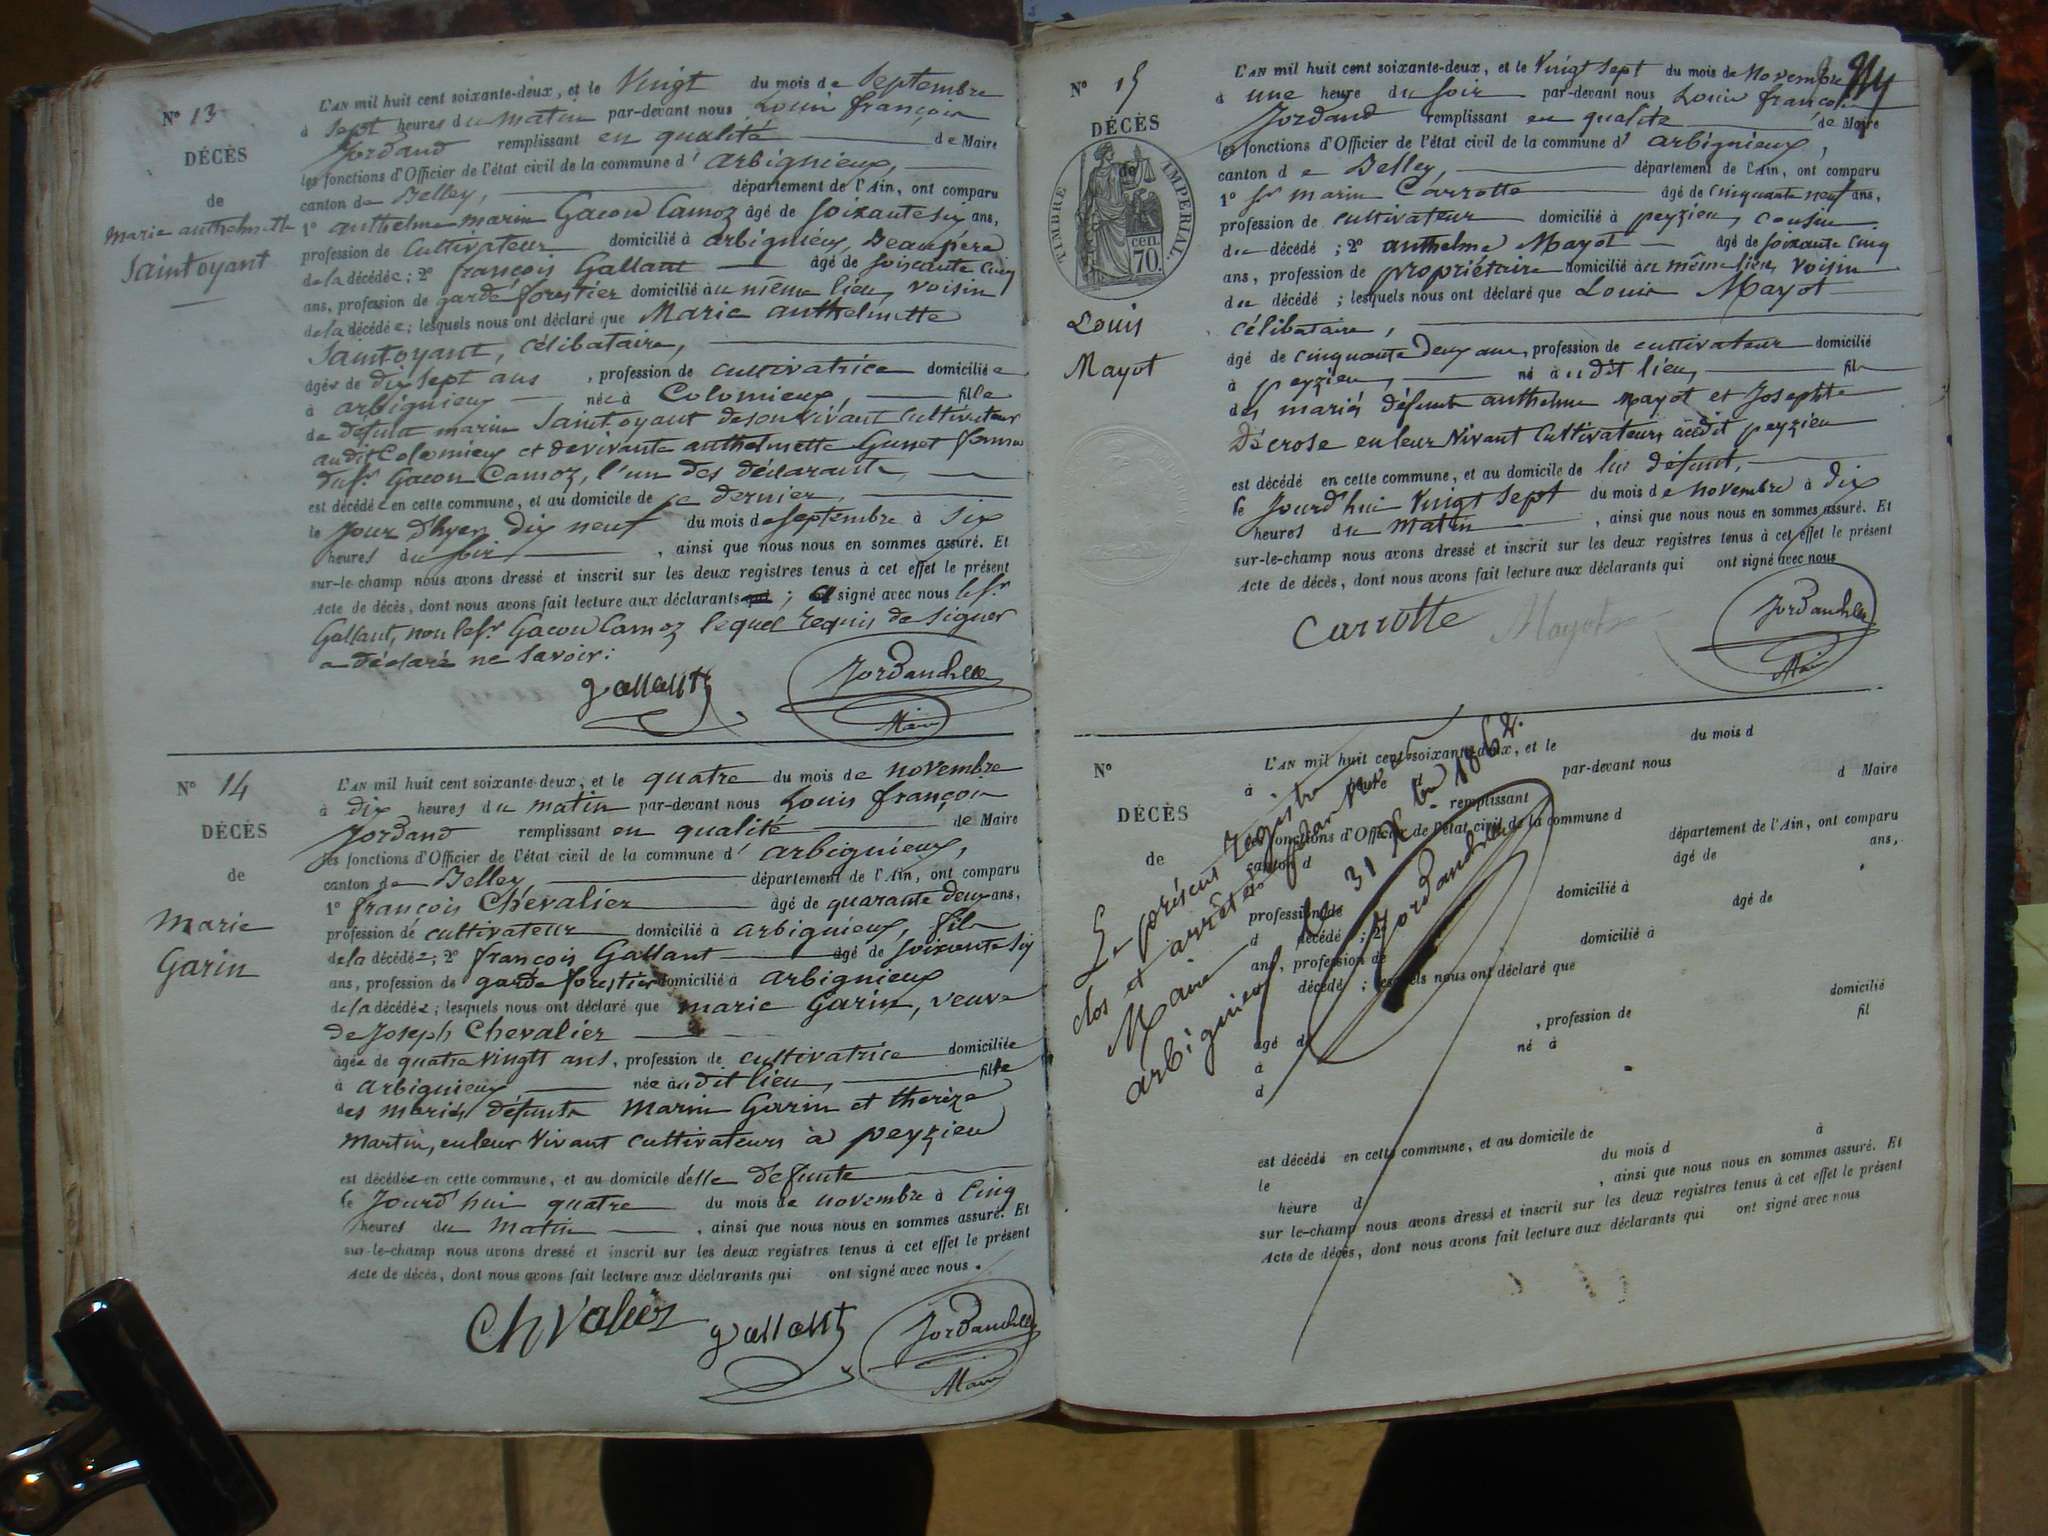 N° 13
DÉCÈS
de
Marie anthelmette
Saintoyant
L'AN mil huit cent soixante-deux, et le Vingt du mois de Septembre
à Sept heures du matin par-devant nous Louis françois
Jordand remplissant en qualité de Maire
les fonctions d'Officier de l'état civil de la commune d' arbignieux,
canton de Belley, département de l'Ain, ont comparu
1° anthelme marin Gacon Camoz âgé de soixante six ans,
profession de Cultivateur domicilié à arbignieux, Beaupère
de la décédée; 2° françois Gallant âgé de soixante cinq
ans, profession de garde forestier domicilié au même lieu, voisin
de la décédée; lesquels nous ont déclaré que Marie anthelmette
Saintoyant, célibataire,
âgée de dix sept ans, profession de cultivatrice domiciliée
à arbignieux née à Colomieux fille
de défunt marin Saintoyant de son vivant Cultivateur
audit Colomieux et de vivante anthelmette Gunet femme
du sr Gacon Camoz, l'un des déclarants
est décédée en cette commune, et au domicile de ce dernier,
le Jour d'hyer dix neuf du mois de Septembre à six
heures du soir, ainsi que nous nous en sommes assuré. Et
sur-le-champ nous avons dressé et inscrit sur les deux registres tenus à cet effet le présent
Acte de décès, dont nous avons fait lecture aux déclarants ; a signé avec nous le sr
Gallant, non le sr Gacon Camoz lequel requis de signer
a déclaré ne savoir.
gallant
Jordand
Maire
N° 14
DÉCÈS
de
Marie
Garin
L'AN mil huit cent soixante-deux, et le quatre du mois de novembre
à dix heures du matin par-devant nous Louis françois
Jordand remplissant en qualité de Maire
les fonctions d'Officier de l'état civil de la commune d' arbignieux,
canton de Belley département de l'Ain, ont comparu
1° françois Chevalier âgé de quarante deux ans,
profession de cultivateur domicilié à arbignieux, fils
de la décédée; 2° françois Gallant âgé de soixante six
ans, profession de garde forestier domicilié à arbignieux
de la décédée; lesquels nous ont déclaré que marie Garin, veuve
de Joseph Chevalier
âgée de quatre vingts ans, profession de cultivatrice domiciliée
à arbignieux née audit lieu, fille
des mariés défunts Marin Garin et therèze
Martin, en leur vivant cultivateurs à peyzieu
est décédée en cette commune, et au domicile d'elle défunte
le Jourd'hui quatre du mois de novembre à Cinq
heures du matin, ainsi que nous nous en sommes assuré. Et
sur-le-champ nous avons dressé et inscrit sur les deux registres tenus à cet effet le présent
Acte de décès, dont nous avons fait lecture aux déclarants qui ont signé avec nous.
Chvalier
gallant
Jordand
Maire
N° 15
DÉCÈS
de
TIMBRE IMPÉRIAL
70 cen.
Louis
Mayot
L'AN mil huit cent soixante-deux, et le Vingt Sept du mois de Novembre
à une heure du soir par-devant nous Louis françois
Jordand remplissant en qualité de Maire
les fonctions d'Officier de l'état civil de la commune d' arbignieux,
canton de Belley département de l'Ain, ont comparu
1° Sr marin Carrotte âgé de Cinquante neuf ans,
profession de cultivateur domicilié à peyzieu, cousin
du décédé; 2° anthelme Mayot âgé de soixante cinq
ans, profession de propriétaire domicilié au même lieu, voisin
du décédé; lesquels nous ont déclaré que Louis Mayot
célibataire,
âgé de cinquante deux ans, profession de cultivateur domicilié
à peyzieu, né audit lieu, fils
des mariés défunts anthelme Mayot et Josephte
Décrose en leur vivant Cultivateurs audit peyzieu
est décédé en cette commune, et au domicile de lui défunt,
le Jourd'hui Vingt Sept du mois de novembre à dix
heures du matin, ainsi que nous nous en sommes assuré. Et
sur-le-champ nous avons dressé et inscrit sur les deux registres tenus à cet effet le présent
Acte de décès, dont nous avons fait lecture aux déclarants qui ont signé avec nous
Carrotte
Mayot
Jordand
Maire
N°
DÉCÈS
de
L'AN mil huit cent soixante-deux, et le du mois d
à heure par-devant nous
remplissant d Maire
les fonctions d'Officier de l'état civil de la commune d
canton d département de l'Ain, ont comparu
1° âgé de ans,
profession de domicilié à
d décédé; 2° âgé de
ans, profession de domicilié à
décédé; lesquels nous ont déclaré que
âgé d, profession de domicilié
à né à fil
d
est décédé en cette commune, et au domicile de
le du mois d à
heure d, ainsi que nous nous en sommes assuré. Et
sur le-champ nous avons dressé et inscrit sur les deux registres tenus à cet effet le présent
Acte de décès, dont nous avons fait lecture aux déclarants qui ont signé avec nous
Le présent registre
clos et arrêté par nous
Maire
arbignieux le 31 Xbre 1862.
Jordand